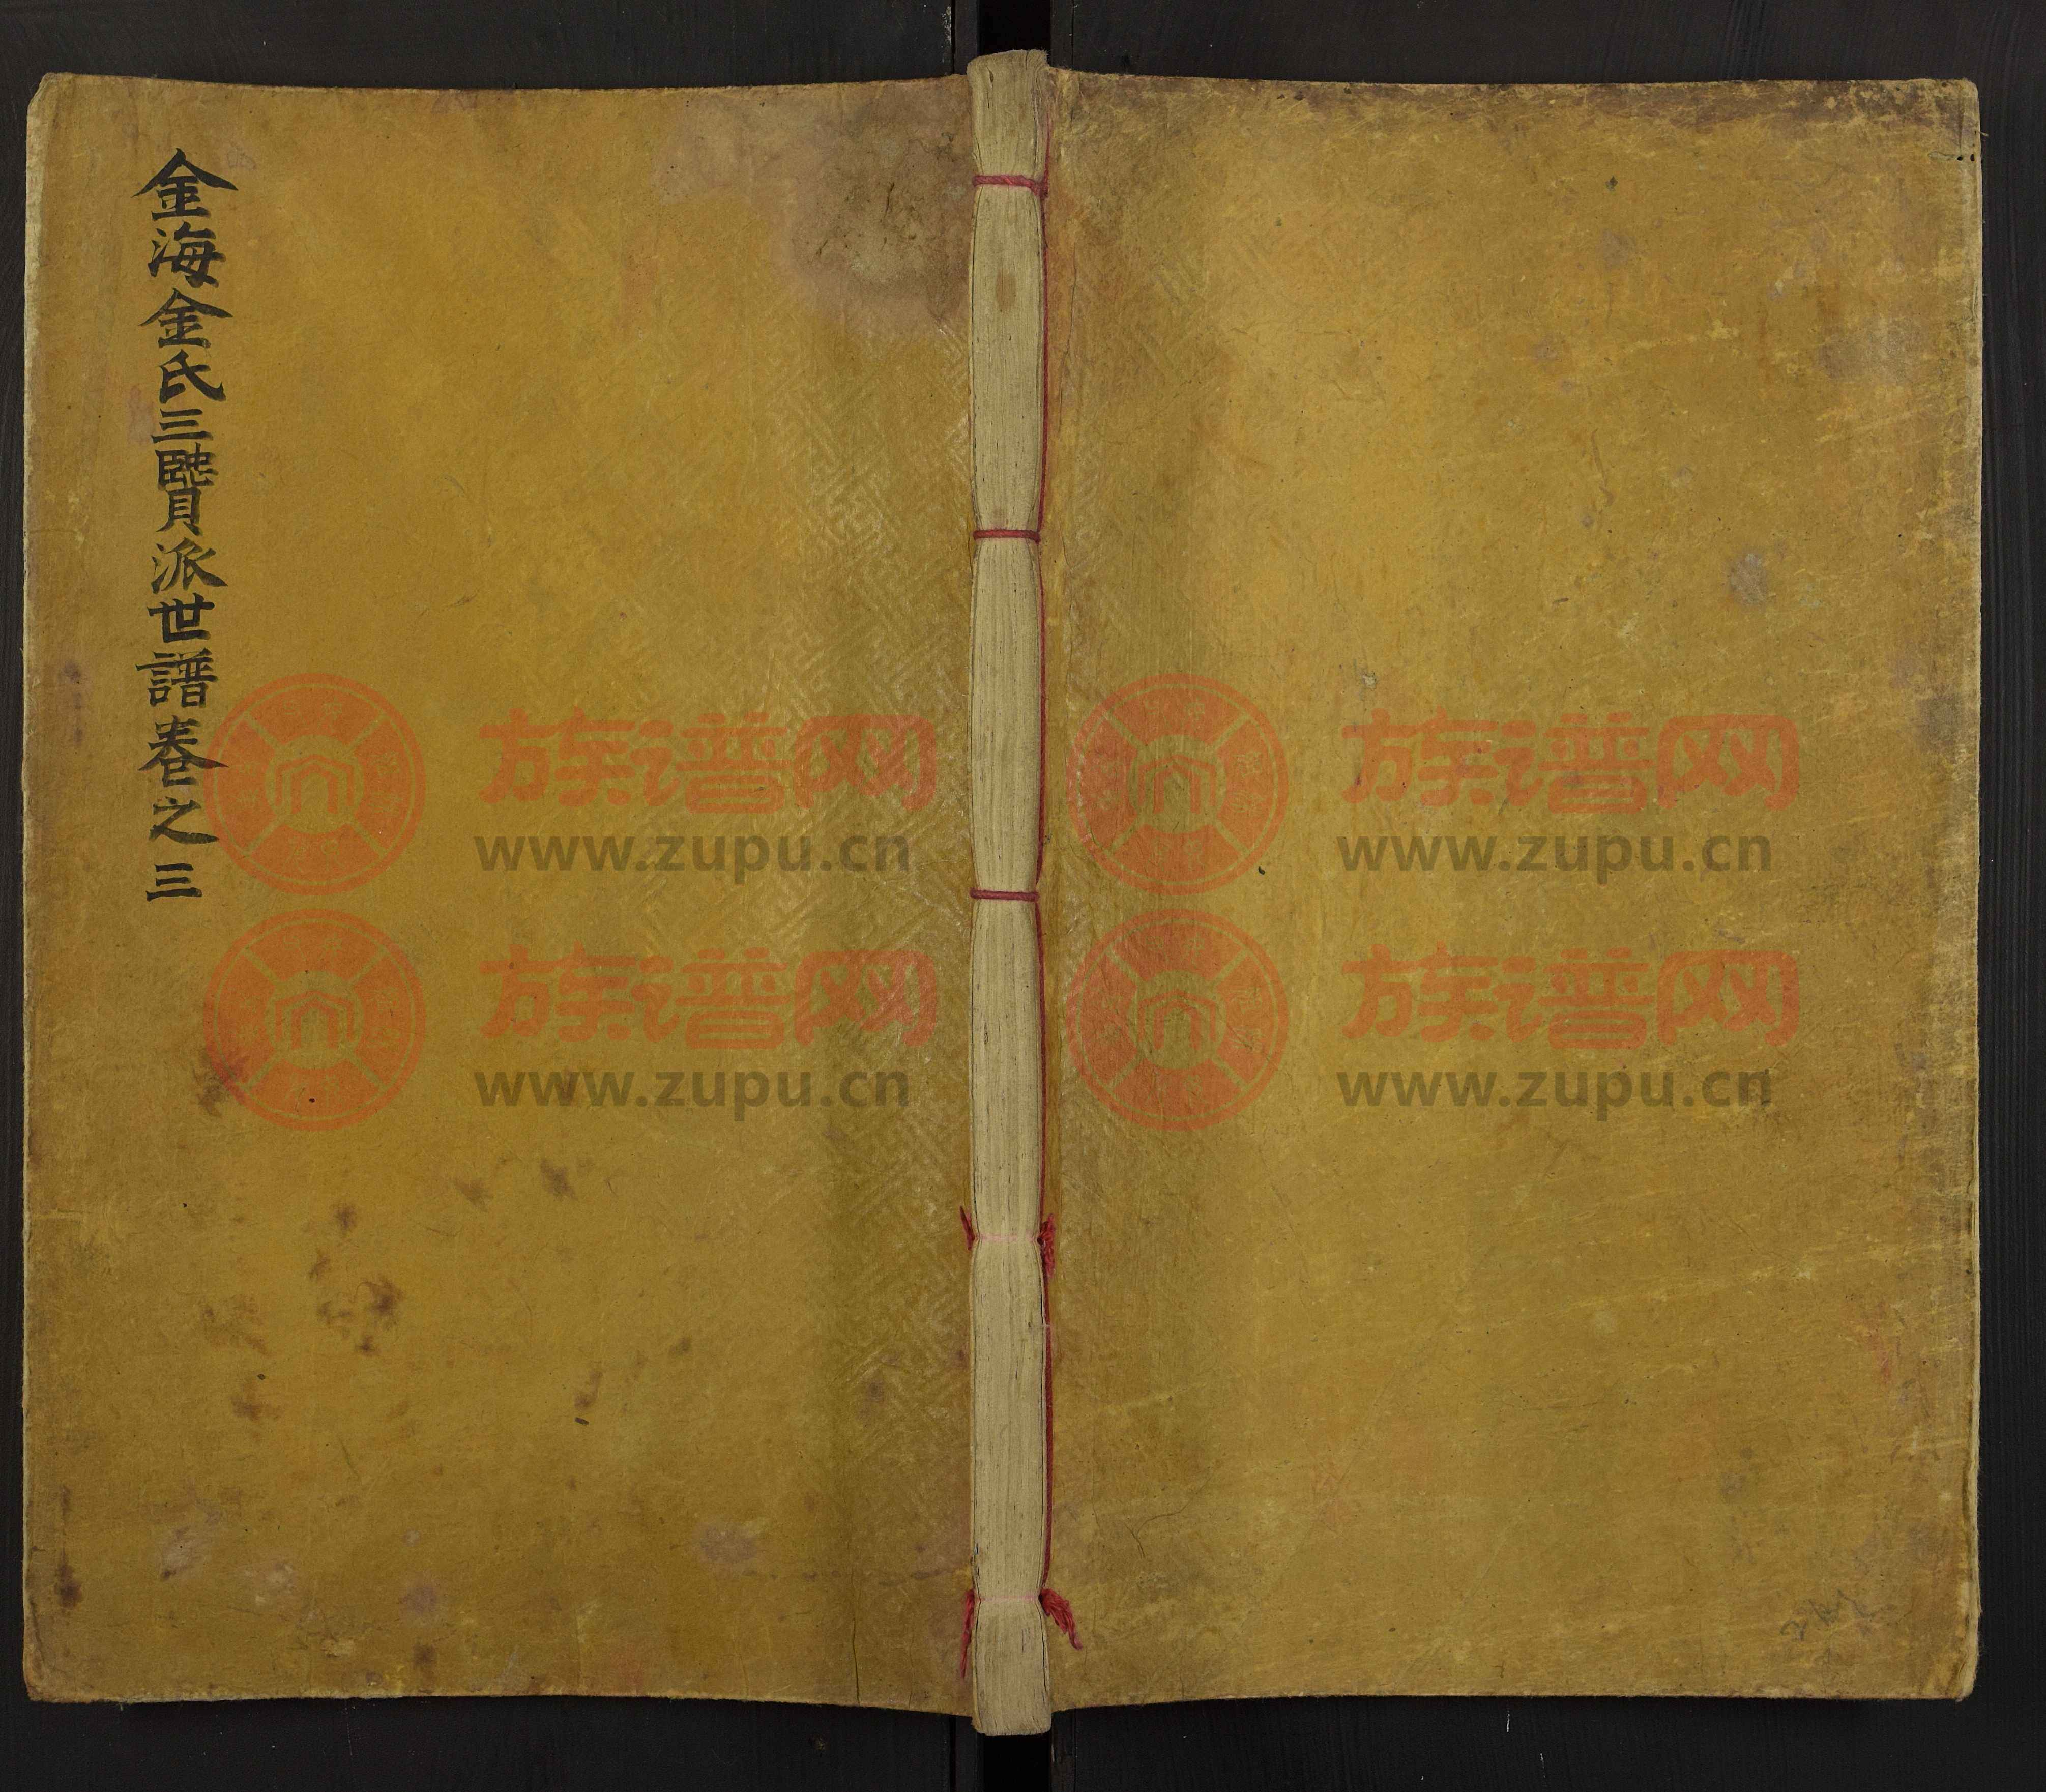 金海金氏三賢派世譜卷之三
族谱网
www.zupu.cn
族谱网
www.zupu.cn
族谱网
www.zupu.cn
族谱网
www.zupu.cn